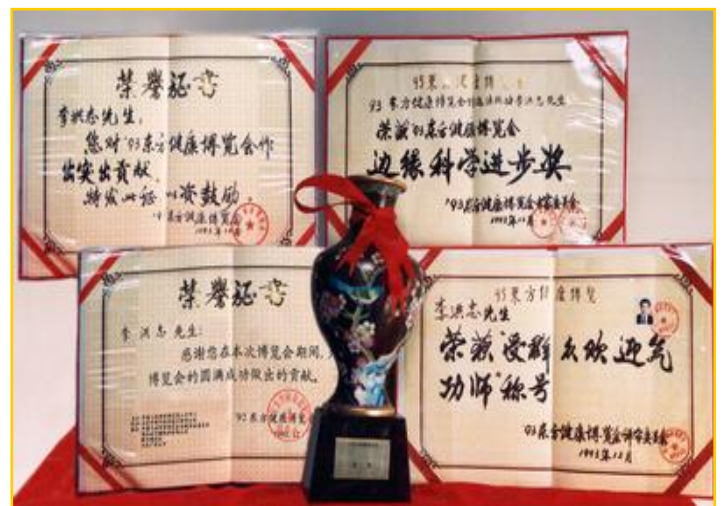 荣誉证书
李洪志先生:
您对'93东方健康博览会作
出突出贡献,
特发此证 以资鼓励。
'93东方健康博览会
1993年12月
93东方健康博览会
荣获93东方健康博览会
边缘科学进步奖
'93东方健康博览会评审委员会
1993年12月
荣誉证书
李洪志 先生:
感谢您在本次博览会期间,
博览会的圆满成功做出的贡献。
'92东方健康博览
93东方健康博览
李洪志先生
荣获"受群众欢迎气
功师"称号
93东方健康博览会评审委员会
1993年12月